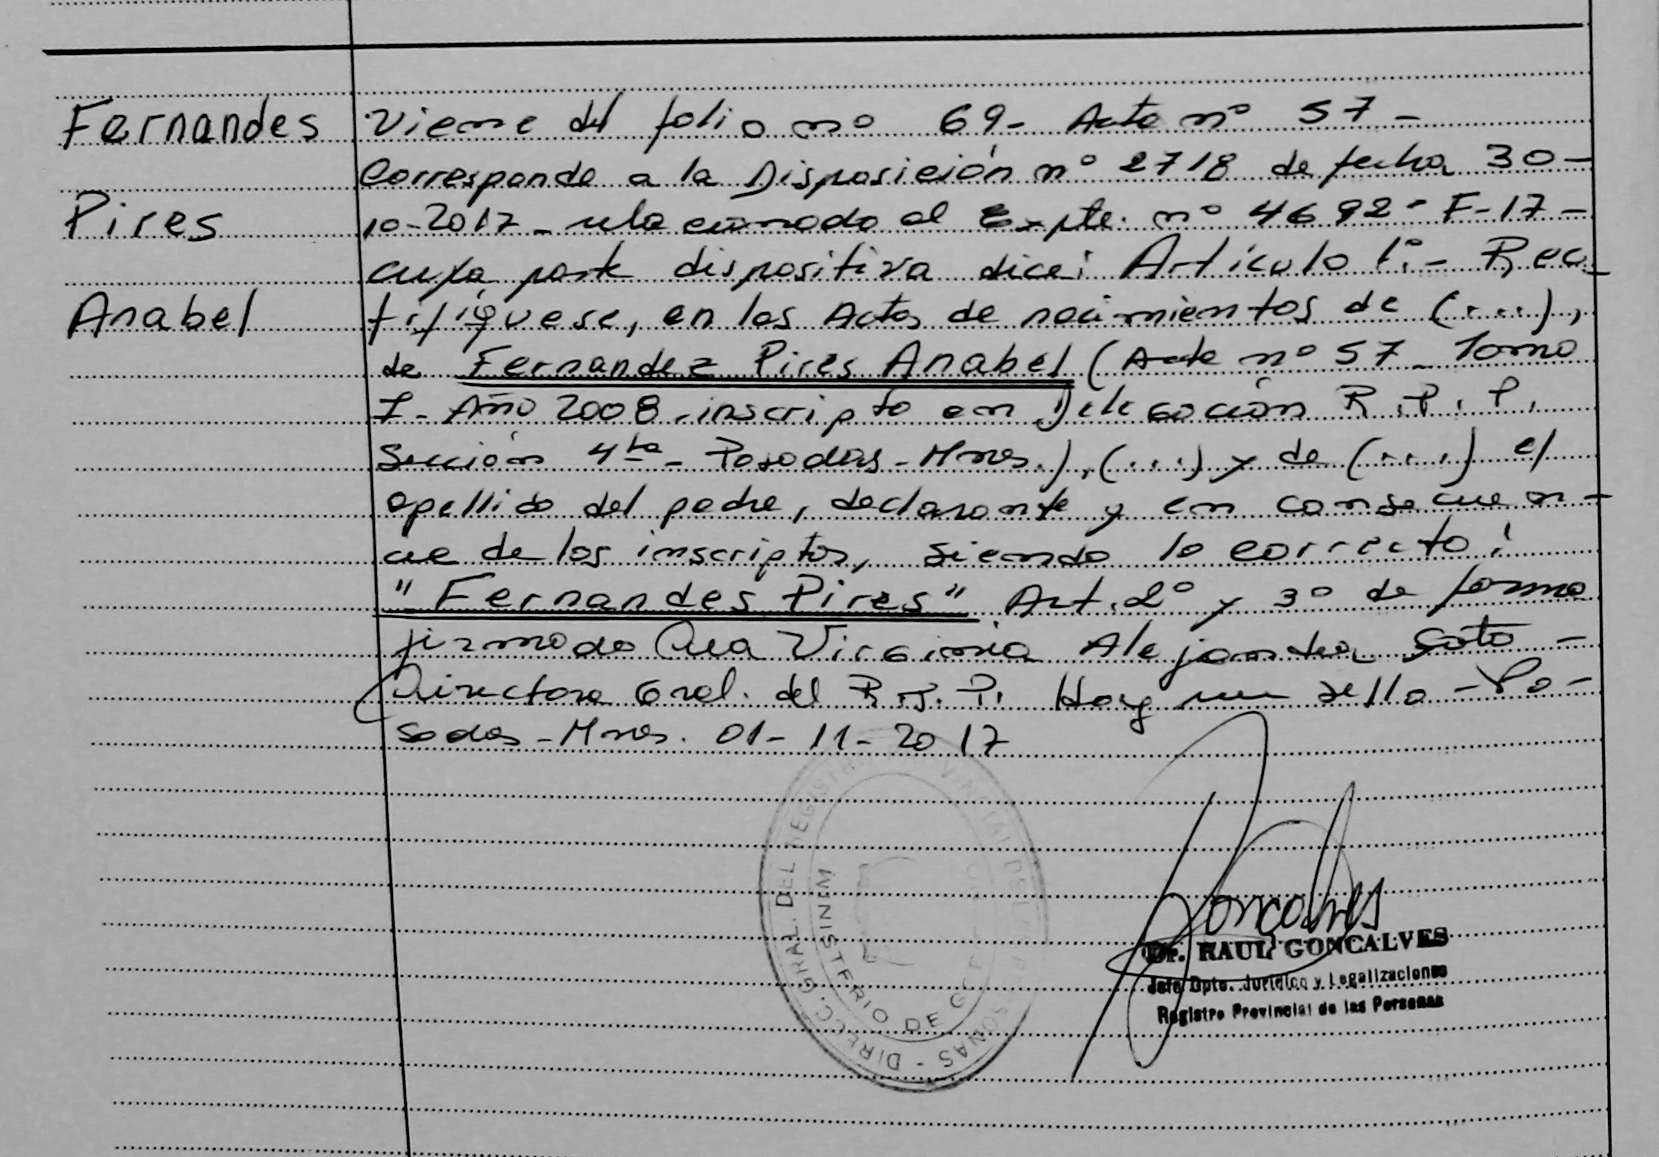 Fernandes
Pires
Anabel
Viene del folio nº 69- Acta nº 57-
Corresponde a la Disposición nº 2718 de fecha 30-
10-2017- relacionado al Expte. nº 4692-F-17-
cuya parte dispositiva dice: Artículo 1º.- Rec-
tifíquese, en las Actas de nacimientos de (....),
de Fernandez Pires Anabel (Acta nº 57- Tomo
I- Año 2008. inscripto en Delegación R.P.P.
Sección 4ta- Posadas-Mnes.), (....) y de (....) el
apellido del padre, declarante y en consecuen-
cia de los inscriptos, siendo lo correcto:
"Fernandes Pires" Art. 2º y 3º de forma
firmado Cra Virginia Alejandra Soto -
Directora Gral. del R.P.P. Hay un sello -Po-
sadas-Mnes. 01-11-2017
DIRECC. GRAL. DEL REGISTRO PROVINCIAL DE LAS PERSONAS -
MINISTERIO DE GO
Goncalves
Dr. RAUL GONCALVES
Jefe Dpto. Jurídico y Legalizaciones
Registro Provincial de las Personas